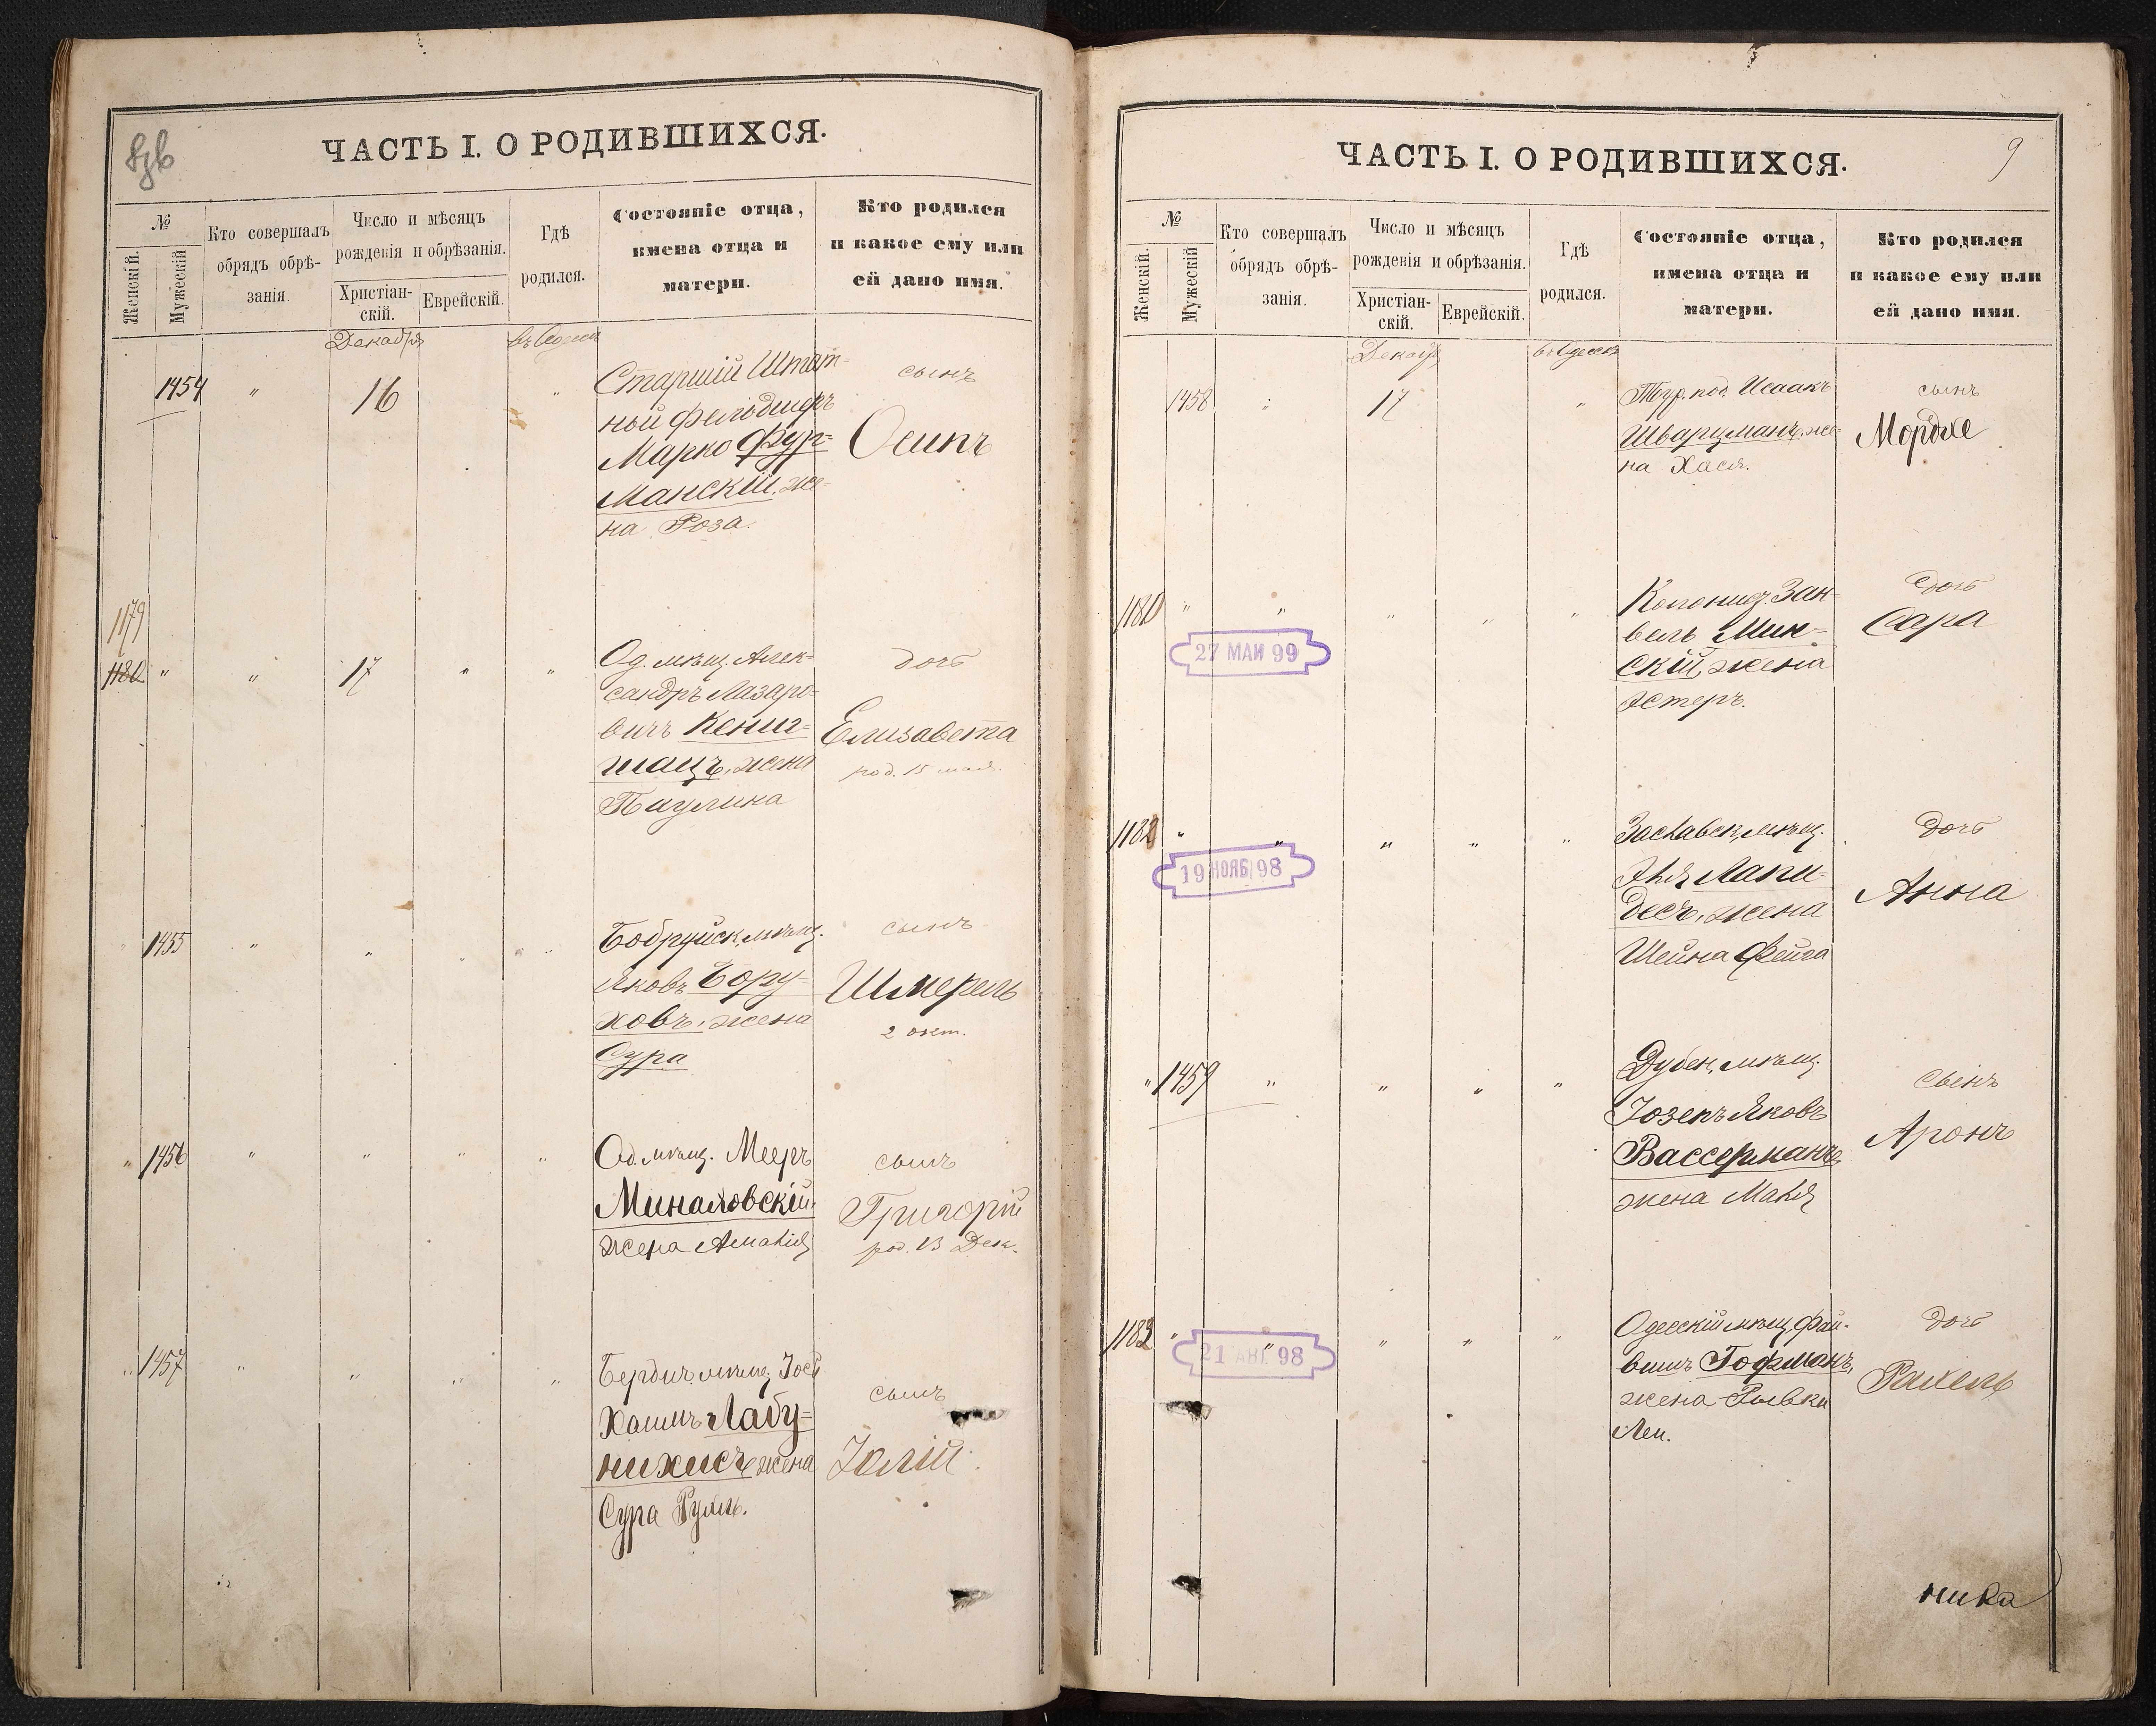 ЧАСТЬ I. О РОДИВШИХСЯ.
№
Женскій.
Мужескій
Кто совершалъ
обрядъ обрѣ-
занія.
Число и мѣсяцъ
рожденія и обрѣзанія.
Христіан-
скій.
Еврейскій.
Гдѣ
родился.
Состояніе отца,
имена отца и
матери.
Кто родился
и какое ему или
ей дано имя.
Декабря
въ Одессѣ
1454
"
16
"
Старшій Штат-
ной фельдшеръ
Марко Фур-
манскій, же-
на Роза.
сынъ
Осипъ
1179
1180
"
"
17
"
"
Од. мѣщ. Алек-
сандръ Лазаро-
вичъ Кениг-
шацъ, жена
Паулина
дочь
Елизавета
род. 15 мая.
"
1455
"
"
"
"
Бобруйск. мѣщ.
Яковъ Бору-
ховъ, жена
Сура
сынъ
Шмерель
2 окт.
"
1456
"
"
"
"
Од. мѣщ. Мееръ
Миналовскій,
жена Амалія
сынъ
Григорій
род. 13 Дек.
"
1457
"
"
"
"
Бердич. мѣщ. Іось
Хаимъ Лабу-
нихисъ, жена
Сура Рухль.
сынъ
Юлій
ЧАСТЬ I. О РОДИВШИХСЯ.
9
№
Женскій.
Мужескій
Кто совершалъ
обрядъ обрѣ-
занія.
Число и мѣсяцъ
рожденія и обрѣзанія.
Христіан-
скій.
Еврейскій.
Гдѣ
родился.
Состояніе отца,
имена отца и
матери.
Кто родился
и какое ему или
ей дано имя.
Декабр
въ Одессѣ
1458
"
17
"
Тур. под. Исаакъ
Шварцманъ, же-
на Хася.
сынъ
Мордхе
"
"
"
"
"
27 МАИ 99
Колонист. Зан-
вель Мин-
скій, жена
Эстеръ.
дочь
Сара
1182
"
"
"
"
"
19 НОЯБ 98
Заславск. мѣщ.
Лапи-
десъ, жена
Шейна Фейга
дочь
Анна
"
1459
"
"
"
"
Дубен. мѣщ.
Іозепъ Яковъ
Вассерманъ,
жена Маня
сынъ
Аронъ
1183
"
"
"
"
"
21 АВГ 98
Одесскій мѣщ. Фай-
вишъ Гофманъ,
жена Рывка
Леи.
дочь
Рахель
ника